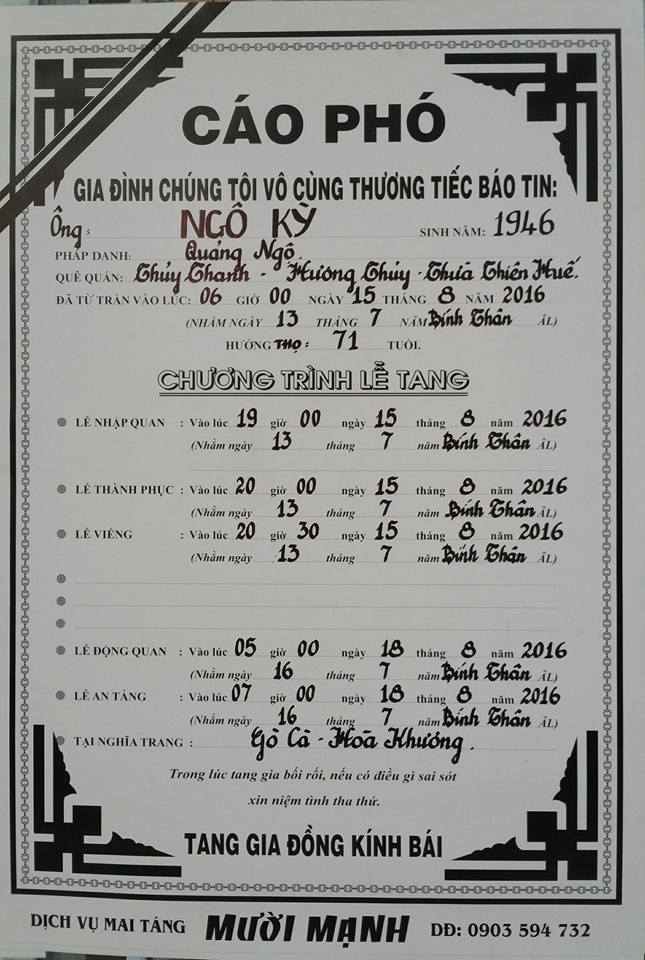 CÁO PHÓ
GIA ĐÌNH CHÚNG TÔI VÔ CÙNG THƯƠNG TIẾC BÁO TIN:
Ông: NGÔ KỲ SINH NĂM: 1946
PHÁP DANH: Quảng Ngô
QUÊ QUÁN: Thủy Thanh - Hương Thủy - Thừa Thiên Huế.
ĐÃ TỪ TRẦN VÀO LÚC: 06 GIỜ 00 NGÀY 15 THÁNG 8 NĂM 2016
(NHẰM NGÀY 13 THÁNG 7 NĂM Bính Thân ÂL)
HƯỞNG THỌ: 71 TUỔI.
CHƯƠNG TRÌNH LỄ TANG
LỄ NHẬP QUAN : Vào lúc 19 giờ 00 ngày 15 tháng 8 năm 2016
(Nhằm ngày 13 tháng 7 năm Bính Thân ÂL)
LỄ THÀNH PHỤC : Vào lúc 20 giờ 00 ngày 15 tháng 8 năm 2016
(Nhằm ngày 13 tháng 7 năm Bính Thân ÂL)
LỄ VIẾNG : Vào lúc 20 giờ 30 ngày 15 tháng 8 năm 2016
(Nhằm ngày 13 tháng 7 năm Bính Thân ÂL)
LỄ ĐỘNG QUAN : Vào lúc 05 giờ 00 ngày 18 tháng 8 năm 2016
(Nhằm ngày 16 tháng 7 năm Bính Thân ÂL)
LỄ AN TÁNG : Vào lúc 07 giờ 00 ngày 18 tháng 8 năm 2016
(Nhằm ngày 16 tháng 7 năm Bính Thân ÂL)
TẠI NGHĨA TRANG : Gò Cà - Hòa Khương.
Trong lúc tang gia bối rối, nếu có điều gì sai sót
xin niệm tình tha thứ.
TANG GIA ĐỒNG KÍNH BÁI
DỊCH VỤ MAI TÁNG MƯỜI MẠNH DĐ: 0903 594 732